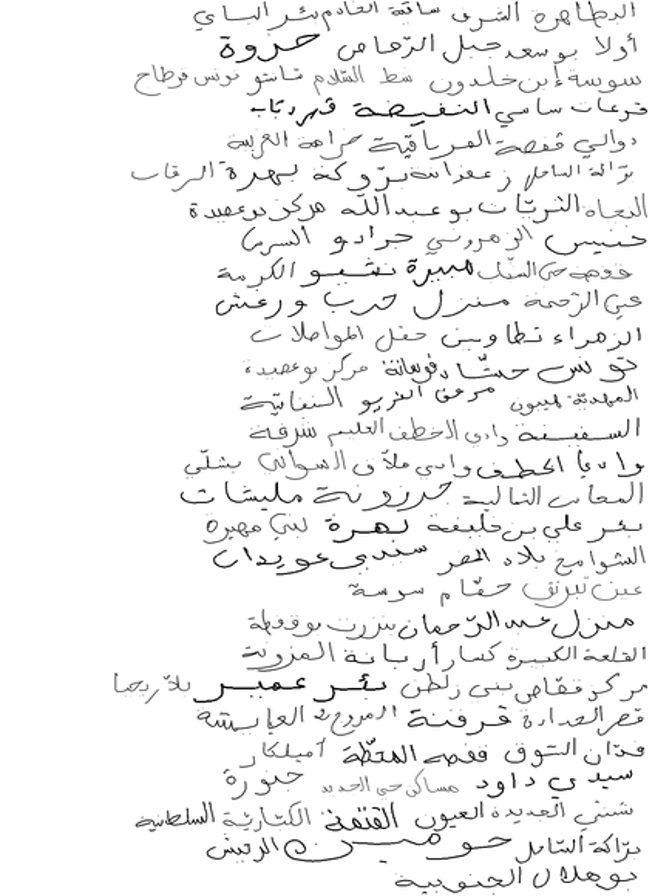 الدظاهرة الشرف ساقية الخادم بئر الباي
أولاد بوسعد جبل الرصاص حزوة
سوسة إبن خلدون شط السلام شانشو تونس قرطاج
فرحات ساسي النفيضة
دوالي قفصة العرباقية
برّاكة الساحل زعفرانة برّوكة بهرة الرقاب
النجاة الثريّات بوعبدالله مركز بوعصيدة
خنيس الزهروني جرادو السرس
قفصة حي السنبل مبيرة نشيو الكرمة
عين الرّحمة منزل حرب ورغش
الزهراء تطاوين حفل المواصلات
تونس حشّاد فوسانة مركز بوعصيدة
المهدية هيبون مرحق الغريو النفاتيّة
السفينة وادي الخطف العليم شرفة
وادي الخطف وادي ملاّق السواني بشلّي
المعاب الشمالية خرزونة مليشات
بئر علي بن خليفة بهرة لبنى مهيرة
الشوامخ بلاد الحضر سيدي عويدات
عين تبرنق حمّام سوسة
منزل عبد الرّحمان بنزرت بوقطفة
القلعة الكبيرة كسار أريانة المزونة
مركز فقاص بني زلطن بئر عمير بلاّريجيا
قصر الحدادة قرقنة المروج العيايشة
فدّان السّوق قفصة المحطّة أميلكار
سيدي داود مساكن حي الحديد جنورة
شنني الجديدة العيون القتفة الكثارية السلطانية
برّاكة السّاحل حومين الرتيش
بوهلال الجنوبية